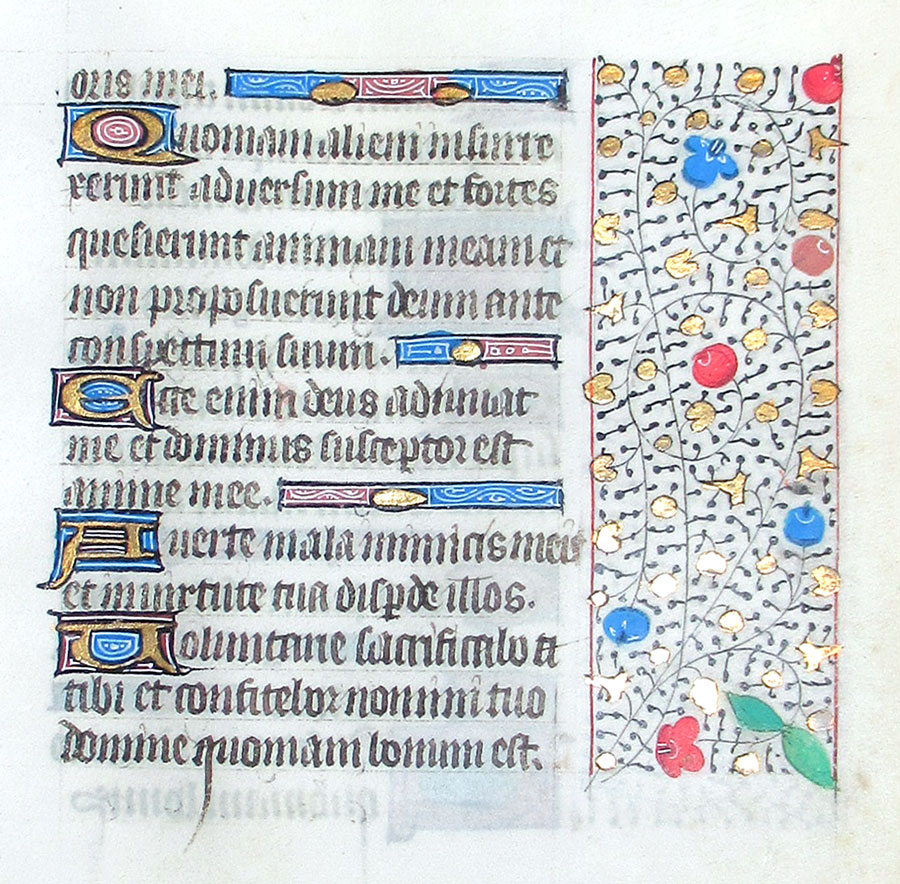 oris mei.
Quoniam alieni insurre
xerunt adversum me et fortes
quesierunt animam meam et
non proposuerunt deum ante
conspectum suum.
Ecce enim deus adiuvat
me et dominus susceptor est
anime mee.
Averte mala inimicis meis
et in virtute tua disp̱de illos.
Voluntarie sacrificabo
tibi et confitebor nomini tuo
domine quoniam bonum est.